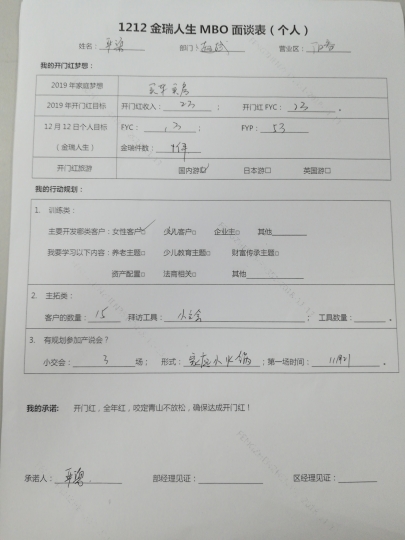 1212 金瑞人生 MBO 面谈表（个人）
姓名： 部门： 营业区：
我的开门红梦想：
2019 年家庭梦想 买车买房
2019 年开门红目标 开门红收入： 23 ； 开门红 FYC： 23 。
12 月 12 日个人目标 FYC： 13 ； FYP： 53
（金瑞人生） 金瑞件数： 9件
开门红旅游 国内游☑ 日本游□ 英国游□
我的行动规划：
1. 训练类：
主要开发哪类客户：女性客户☑ 少儿客户□ 企业主□ 其他
我要学习以下内容：养老主题□ 少儿教育主题□ 财富传承主题□
资产配置□ 法商相关□ 其他
2. 主拓类：
客户的数量： 15 拜访工具： ；工具数量： 。
3. 有规划参加产说会？
小交会： 3 场； 形式： 家庭小火锅 ；第一场时间： 。
我的承诺： 开门红，全年红，咬定青山不放松，确保达成开门红！
承诺人： 部经理见证： 区经理见证：